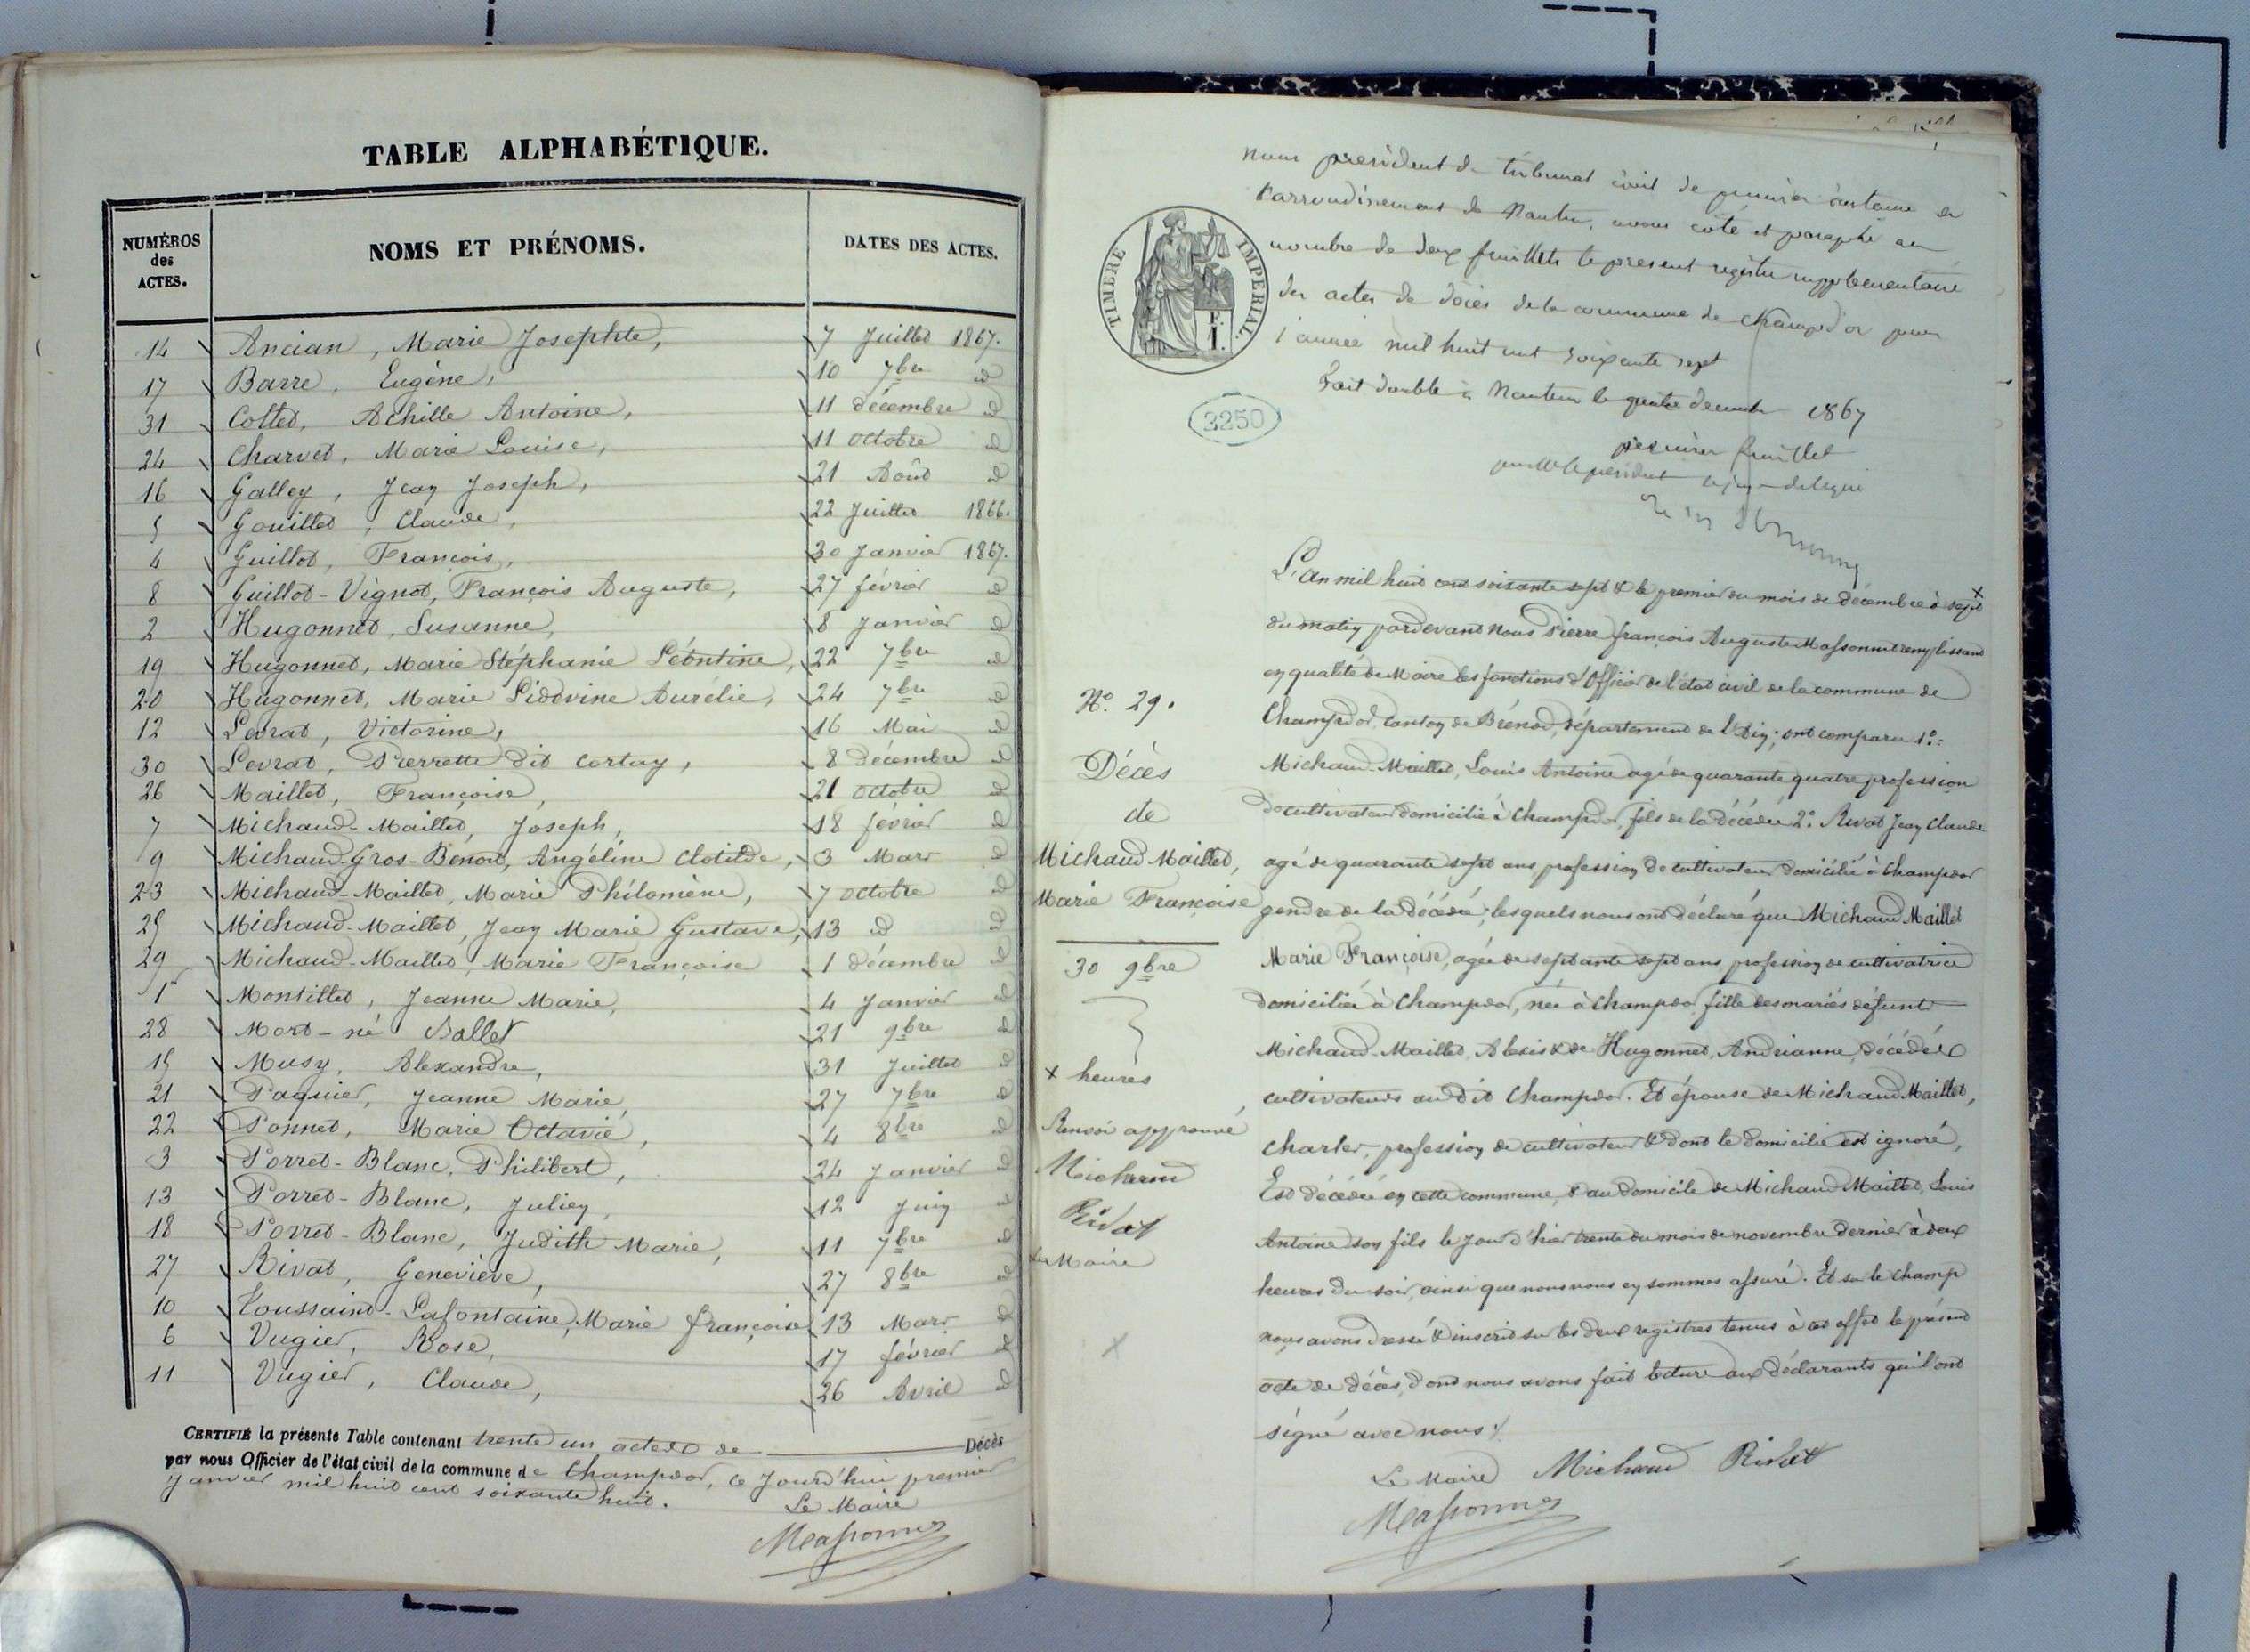 TABLE ALPHABÉTIQUE.
NUMÉROS des ACTES. NOMS ET PRÉNOMS. DATES DES ACTES.
14 Ancian, Marie Josephte, 7 Juillet 1867.
17 Barre, Eugène, 10 7bre id
31 Collet, Achille Antoine, 11 décembre id
24 Charvet, Marie Louise, 11 octobre id
16 Galley, Jean Joseph, 21 Août id
5 Gouillet, Claude, 22 Juillet 1866.
4 Guillot, François, 30 Janvier 1867.
8 Guillot-Vignot, François Auguste, 27 février id
2 Hugonnet, Susanne, 8 Janvier id
19 Hugonnet, Marie Stéphanie Léontine, 22 7bre id
20 Hugonnet, Marie Lidovine Aurélie, 24 7bre id
12 Levrat, Victorine, 16 Mai id
30 Levrat, Pierrette dit Cortay, 8 décembre id
26 Maillet, Françoise, 21 octobre id
7 Michaud-Maillet, Joseph, 18 février id
9 Michaud-Gros-Benoit, Angéline Clotilde, 3 Mars id
23 Michaud-Maillet, Marie Philomène, 7 octobre id
25 Michaud-Maillet, Jean Marie Gustave, 13 id id
29 Michaud-Maillet, Marie Françoise 1 décembre id
1 Montillet, Jeanne Marie, 4 Janvier id
28 Mort-né Ballet 21 9bre id
15 Musy, Alexandre, 31 Juillet id
21 Paquier, Jeanne Marie, 27 7bre id
22 Ponnet, Marie Octavie, 4 8bre id
3 Porret-Blanc, Philibert, 24 Janvier id
13 Porret-Blanc, Julien, 12 Juin id
18 Porret-Blanc, Judith Marie, 11 7bre id
27 Rivat, Geneviève, 27 8bre id
10 Toussaint-Lafontaine, Marie françoise 13 Mars id
6 Vugier, Rose, 17 février id
11 Vugier, Claude, 26 Avril id
CERTIFIÉ la présente Table contenant trente un actes de Décès
par nous Officier de l'état civil de la commune de Champdor, ce Jourd'hui premier
Janvier mil huit cent soixante huit.
Le Maire
Massonnet
Nous président du tribunal civil de première instance de
l'arrondissement de Nantua, avons coté et paraphé au
nombre de deux feuillets le présent registre supplémentaire
des actes de décès de la commune de Champdor pour
l'année mil huit cent soixante sept
Fait double à Nantua le quatre décembre 1867
premier feuillet
pour Mr le président le juge délégué
TIMBRE IMPÉRIAL.
F. 1.
2250
No. 29.
Décès
de
Michaud Maillet,
Marie Françoise
30 9bre
x heures
Renvoi approuvé
Michaud
Rivat
Le Maire
L'an mil huit cent soixante sept & le premier du mois de décembre à sept x
du matin pardevant nous Pierre françois Auguste Massonnet remplissant
en qualité de Maire les fonctions d'Officier de l'état civil de la commune de
Champdor, canton de Brénod, département de l'Ain; ont comparu 1°:
Michaud-Maillet, Louis Antoine agé de quarante quatre profession
de cultivateur domicilié à Champdor, fils de la décédée 2° Rivat Jean Claude
agé de quarante sept ans, profession de cultivateur domicilié à Champdor
gendre de la décédée; lesquels nous ont déclaré que Michaud Maillet
Marie Françoise, agée de septante sept ans, profession de cultivatrice
domiciliée à Champdor, née à Champdor fille des mariés défunt
Michaud-Maillet, Alexis & de Hugonnet, Andrianne, décédés
cultivateurs au dit Champdor. Et épouse de Michaud Maillet,
Charles, profession de cultivateur & dont le domicile est ignoré,
Est décédée en cette commune, & au domicile de Michaud Maillet, Louis
Antoine son fils le jour d'hier trente du mois de novembre dernier à deux
heures du soir, ainsi que nous nous en sommes assuré. Et sur le champ
nous avons dressé & inscrit sur les deux registres tenus à cet effet le présent
acte de décès, dont nous avons fait lecture aux déclarants qui l'ont
signé avec nous
Le Maire Michaud Rivat
Massonnet